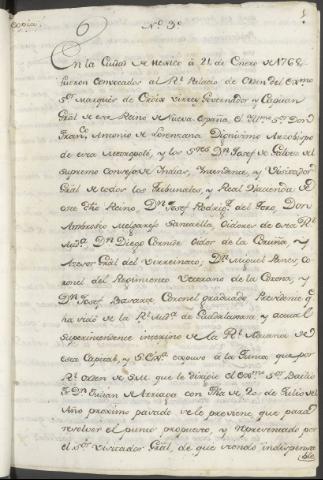 Copia
N.º 3.º
En la Ciudad de Mexico à 21 de Enero de 1768
fueron convocados al R.l Palacio de Orden del Ex.mo
S.or Marques de Croix Virrey Governador y Capitan
Gral de este Reino de Nueva España, el Ill.mo S.or Don
Fran.co Antonio de Lorenzana Dignisimo Arzobispo
de esta Metropoli, y los S.res D.n Josef de Galvez del
Supremo Consejo de Indias, Intendente, y Visitador
Gral de todos los Tribunales, y Real Hacienda de
este dho Reino, D.n Josef Rodrig.z del Toro, Don
Ambrosio Melgarejo Santaella, Oidores de esta R.l
Aud.a D.n Diego Cornide Oidor de la Coruña, y
Asesor Gral del Virreinato; D.n Miguel Co-
ronel del Regimiento Veterano de la Corona, y
D.n Josef Basarte Coronel graduado, Presidente q.e
ha sido de la R.l Aud.a de Guadalaxara, y actual
Superintendente interino de la R.l Aduana de
esta Capital, y S. Ex.a expuso à la Junta, que por
R.l Orden de S.M. que le dirigió el Ex.mo S.or Bailio
F. D.n Julian de Arriaga con fha de 20 de Julio del
Año proximo pasado se le previene, que para
resolver el punto propuesto, y representado por
el S.or Visitador Gral, de que siendo indispensa
ble